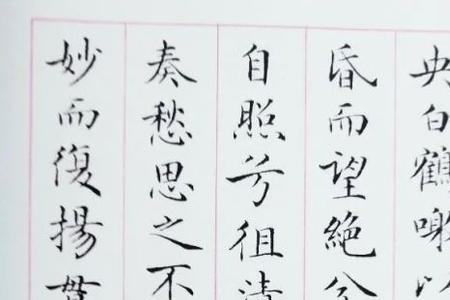 央白鶴噭以
昏而望絶兮
自照兮徂清
奏愁思之不
妙而復揚貫